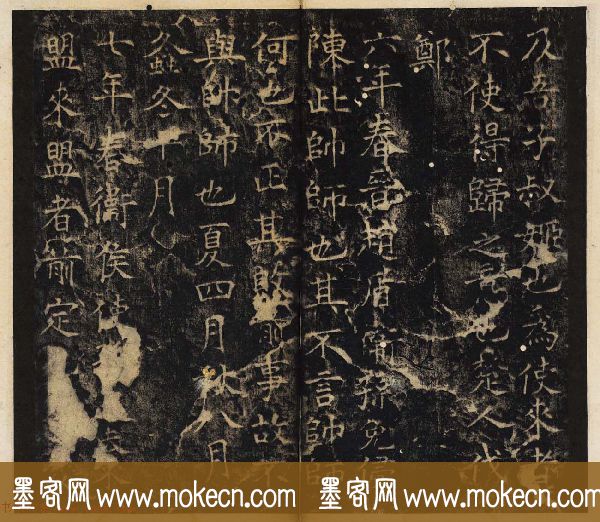 及吾子叔姬也為使來者
不使得歸之意也楚人伐
鄭
六年春晉趙盾衛孫免侵
陳此帥師也其不言帥師
何也不正其敗前事故不
與帥師也夏四月秋八月
螽冬十月
七年春衛侯使來
盟來盟者前定
墨客网www.mokecn.com 墨客网www.mokecn.com